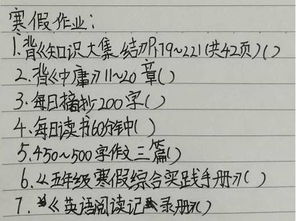 寒假作业：
1.背《知识大集结》P179~221(共42页)( )
2.背《中庸》11~20章( )
3.每日摘抄200字( )
4.每日读书60分钟( )
5.450~500字作文三篇( )
6.《五年级寒假综合实践手册》( )
7.《英语阅读记录册》( )